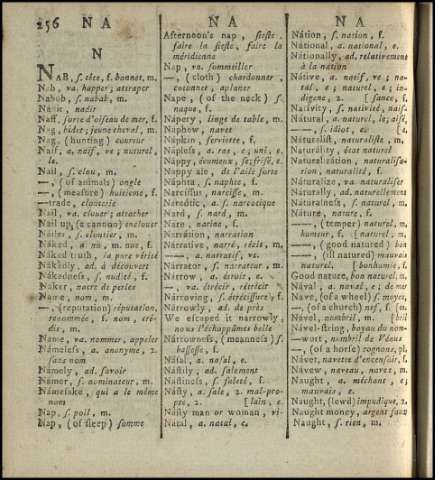 256 N A
N A
N A
N
NAB, s. tête, f. bonnet, m.
Nab, va. happer; attraper
Nabob, s. nabab, m.
Nadir, nadir
Naff, sorte d'oiseau de mer, f.
Nag, bidet; jeune cheval, m.
Nag, (hunting) coureur
Naif, a. naif, ve; naturel,
le.
Nail, s. clou, m.
—, (of animals) ongle
—, (measure) huitieme, f.
—trade, clouterie
Nail, va. clouer; attacher
Nail up, (a cannon) enclouer
Náiler, s. cloutier, m.
Náked, a. nu, m. nue, f.
Náked truth, la pure vérité
Nákedly, ad. à découvert
Nákedness, s. nudité, f.
Náker, nacre de perles
Name, nom, m.
—, (reputation) réputation,
renommée, f. nom, cré-
dit, m.
Name, va. nommer, appeler
Námeless, a. anonyme, 2.
sans nom
Námely, ad. savoir
Námer, s. nominateur, m.
Námesake, qui a le même
nom
Nap, s. poil, m.
Nap, (of sleep) somme
Afternoon's nap, sieste.
faire la sieste, faire la
méridienne
Nap, va. sommeiller
—, (cloth) chardonner
cotonner, aplaner
Nape, (of the neck) s.
nuque, f.
Nápery, linge de table, m.
Náphew, navet
Nápkin, serviette, f.
Nápless, a. ras, e; uni, e.
Náppy, écumeux, se; frisé, e.
Nappy ale, de l'aile forte
Náphta, s. naphte, f.
Narcissus, narcisse, m.
Narcótic, a. s. narcotique
Nard, s. nard, m.
Nare, narine, f.
Narrátion, narration, f.
Nárrative, narré, récit, m.
—, a. narratif, ve.
Narrátor, s. narrateur, m.
Nárrow, a. étroit, e.
—, va. étrécir, rétrécir
Nárrowing, s. étrécissure, f.
Nárrowly, ad. de près
We escaped it narrowly,
nous l'échappâmes belle
Nárrowness, (meanness) s.
bassesse, f.
Násal, a. nasal, e.
Nástily, ad. salement
Nástiness, s. saleté, f.
Násty, a. sale, 2. mal-pro-
pre, 2. [lain, e.
Násty man or woman, vi-
Natal, a. natal, e.
Nátion, s. nation, f.
Nátional, a. national, e.
Nátionally, ad. relativement
à la nation
Nátive, a. natif, ve; na-
tal, e; naturel, e; in-
digene, 2. [sance, f.
Natívity, s. nativité, nais-
Nátural, a. naturel, le; aisé,
—, s. idiot, e.
Náturalist, naturaliste, m.
Naturálity, état naturel
Naturalizátion, naturalisa-
tion, naturalité, f.
Náturalize, va. naturaliser
Náturally, ad. naturellement
Náturalness, s. naturel, m.
Náture, nature, f.
—, (temper) naturel, m.
humeur, f. [naturel, m.
—, (good natured) bon
—, (ill natured) mauvais
naturel. [bonhomie, f.
Good nature, bon naturel, m.
Nával, a. naval, e; de mer
Nave, (of a wheel) s. moyeu, m.
—, (of a church) nef, f. (m.
Nável, nombril, m.
Nável-string, boyau du nom-
—wort, nombril de Vénus
—, (of a horse) rognons, pl.
Návet, navette d'encensoir, f.
Návew, naveau, navet, m.
Naught, a. méchant, e;
mauvais, e.
Naught, (lewd) impudique, 2.
Naught money, argent faux
Naught, s. rien, m.